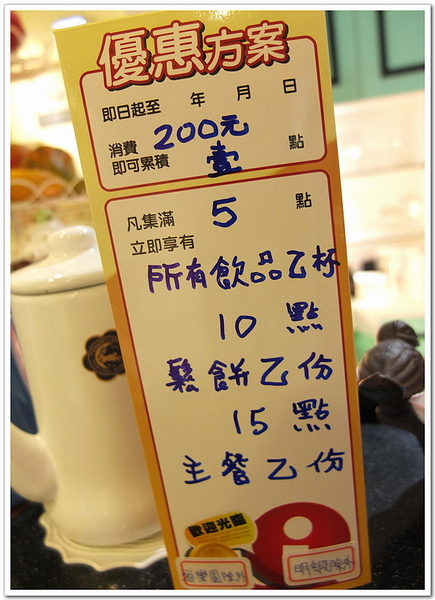 優惠方案
即日起至 年 月 日
消費 200元
即可累積 壹 點
凡集滿 5 點
立即享有
所有飲品乙杯
10 點
鬆餅乙份
15 點
主餐乙份
歡迎光臨
明蝦除外